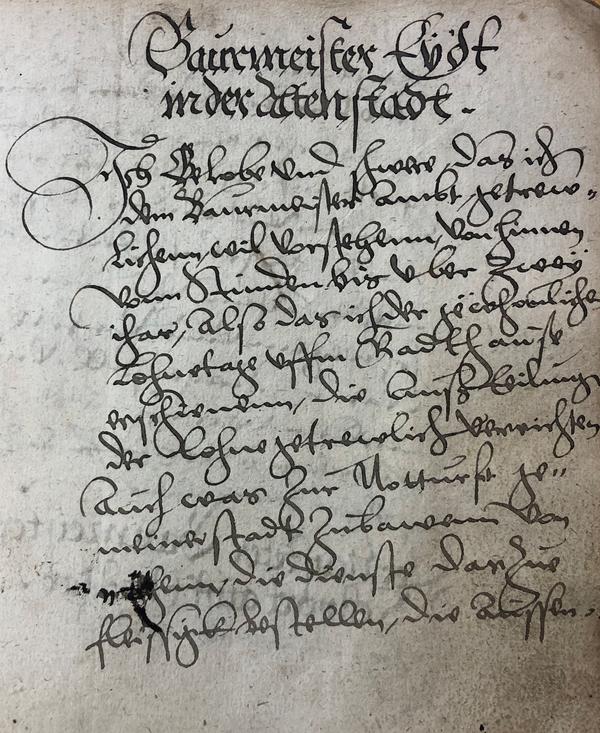 Baurmeister Eydt
in der Altenstadt.
Ich Gelobe vnd schwere, das ich
dem Baurmeister Ambt getrew-
lichenn, wil Vorstehenn, von hinnen
vonn Stunden, bis vber Zwey
ihar, Also das ich der gewohnliche
Lohnetage vffm Radthause
erschienenn, die Außtheilung
der Lohne getrewlich verrichten
Auch was Zur Notturft ge-
meiner stadt Zubawenn von
die dienste darZue
fleissigk bestellen, die Aussen-